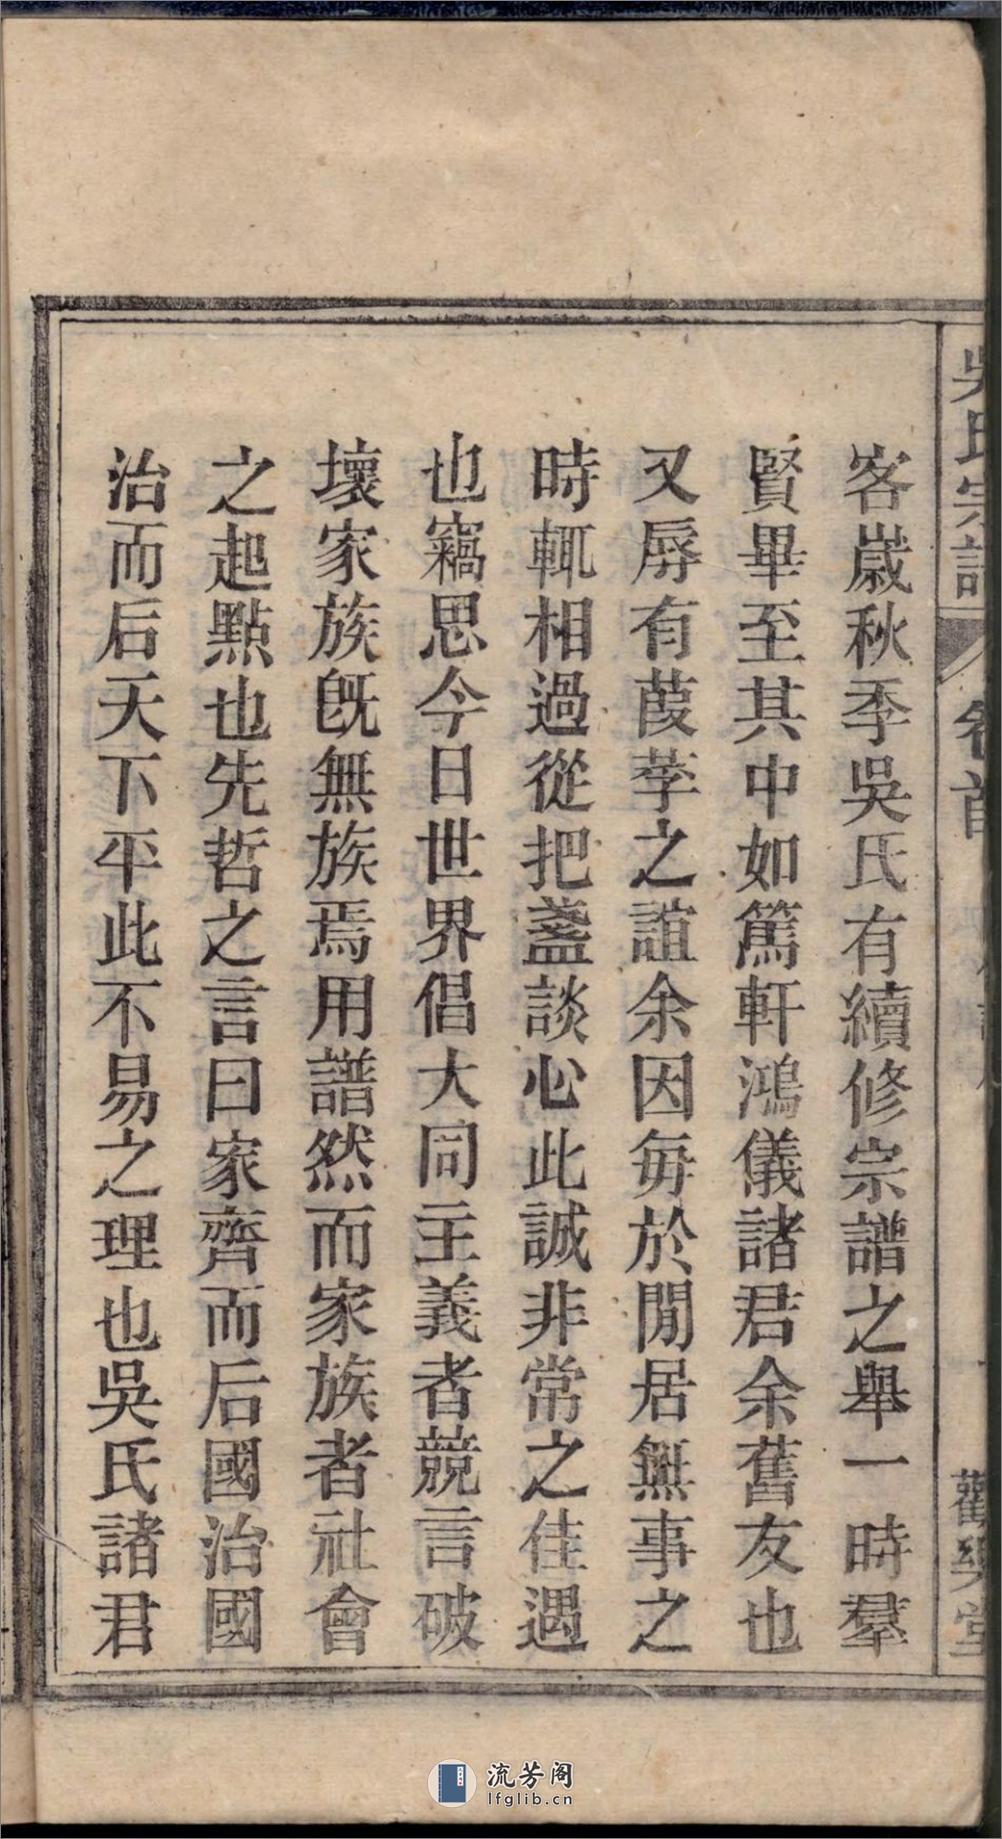 吳氏宗譜
卷首
觀樂堂
客嵗秋季吳氏有續修宗譜之舉一時羣
賢畢至其中如篤軒鴻儀諸君余舊友也
又辱有葭莩之誼余因每於閒居無事之
時輒相過從把盞談心此誠非常之佳遇
也竊思今日世界倡大同主義者競言破
壞家族旣無族焉用譜然而家族者社會
之起點也先哲之言曰家齊而后國治國
治而后天下平此不易之理也吳氏諸君
流芳阁
lfglib.cn